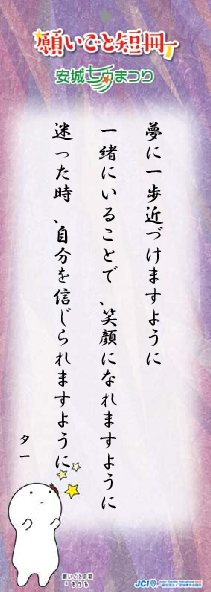 願いごと短冊
安城七夕まつり
夢に一歩近づけますように
一緒にいることで、笑顔になれますように
迷った時、自分を信じられますように
ター
JCI